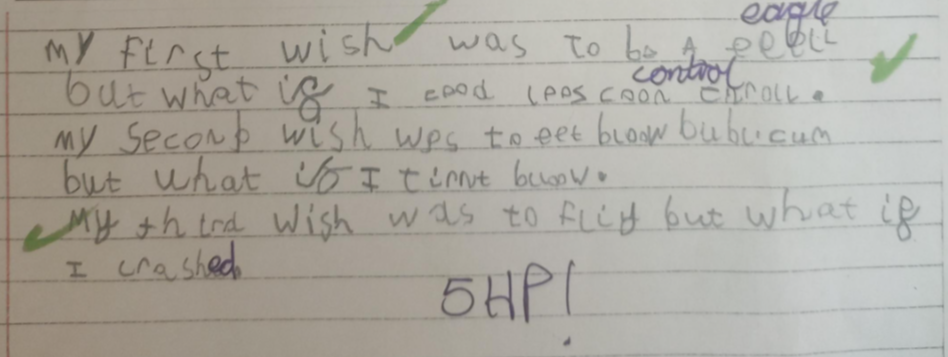 eagle
my first wish was to be A eeell
control
but what if I cood loos coon cntroll.
my second wish wps to eet bloow bubl.cum
but what if I tinnt bloow.
My third wish was to fliy but what if
I crashed.
5HP!